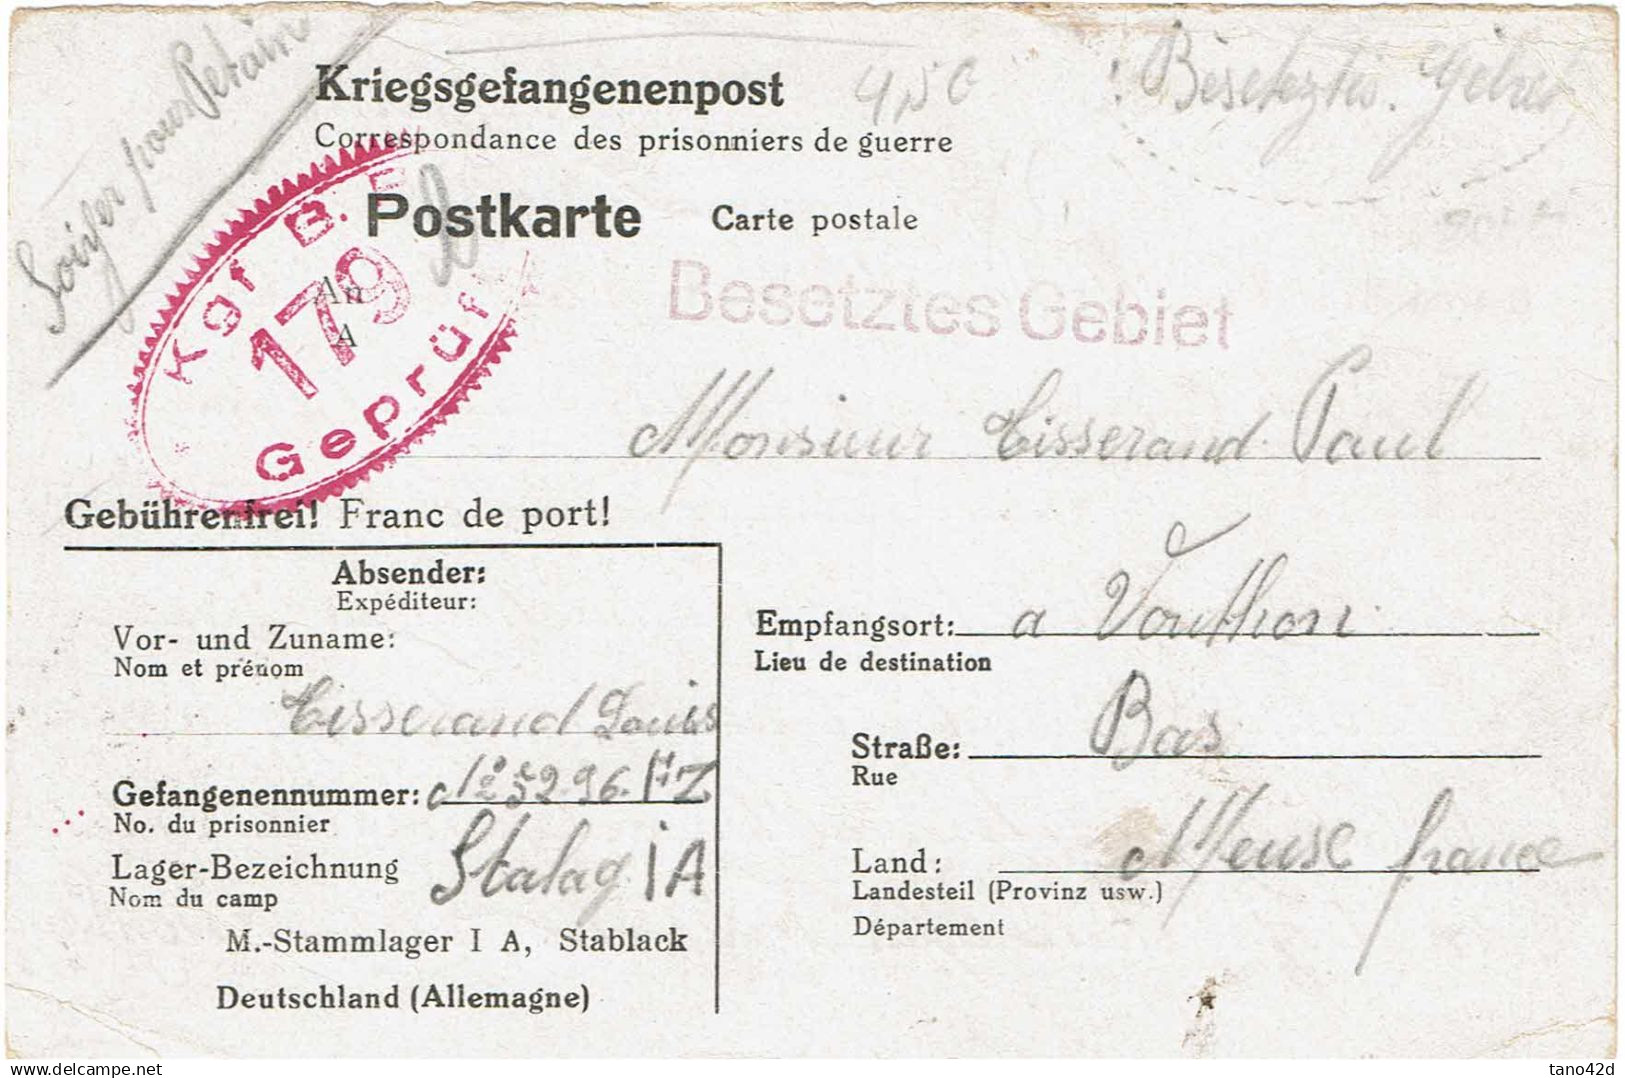 pour Petain
Kriegsgefangenenpost
450
Besetztes Gebiet
Correspondance des prisonniers de guerre
Postkarte Carte postale
Kgf B. E.
179
Geprüft
An
A
Besetztes Gebiet
Monsieur Tisserand Paul
Gebührenfrei! Franc de port!
Absender:
Expéditeur:
Vor- und Zuname:
Nom et prénom
Tisserand Louis
Gefangenennummer:
No. du prisonnier
Lager-Bezeichnung
Nom du camp
Stalag IA
M.-Stammlager I A, Stablack
Deutschland (Allemagne)
Empfangsort: a Vouthon
Lieu de destination
Straße: Bas
Rue
Land: Meuse france
Landesteil (Provinz usw.)
Département
delcampe.net
tano42d